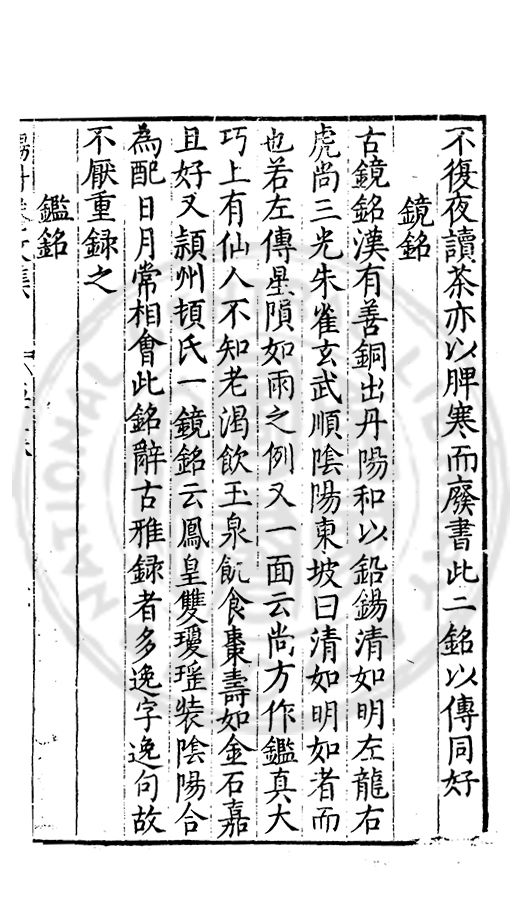 不復夜讀茶亦以脾寒而廢書此二銘以傳同好
鏡銘
古鏡銘漢有善銅出丹陽和以鉛錫清如明左龍右
虎尚三光朱雀玄武順陰陽東坡曰清如明如者而
也若左傳星隕如雨之例又一面云尚方作鑑真大
巧上有仙人不知老渴飲玉泉飢食棗壽如金石嘉
且好又潁州頓氏一鏡銘云鳳皇雙瓊瑤裝陰陽合
為配日月常相會此銘辭古雅録者多逸字逸句故
不厭重録之
鑑銘